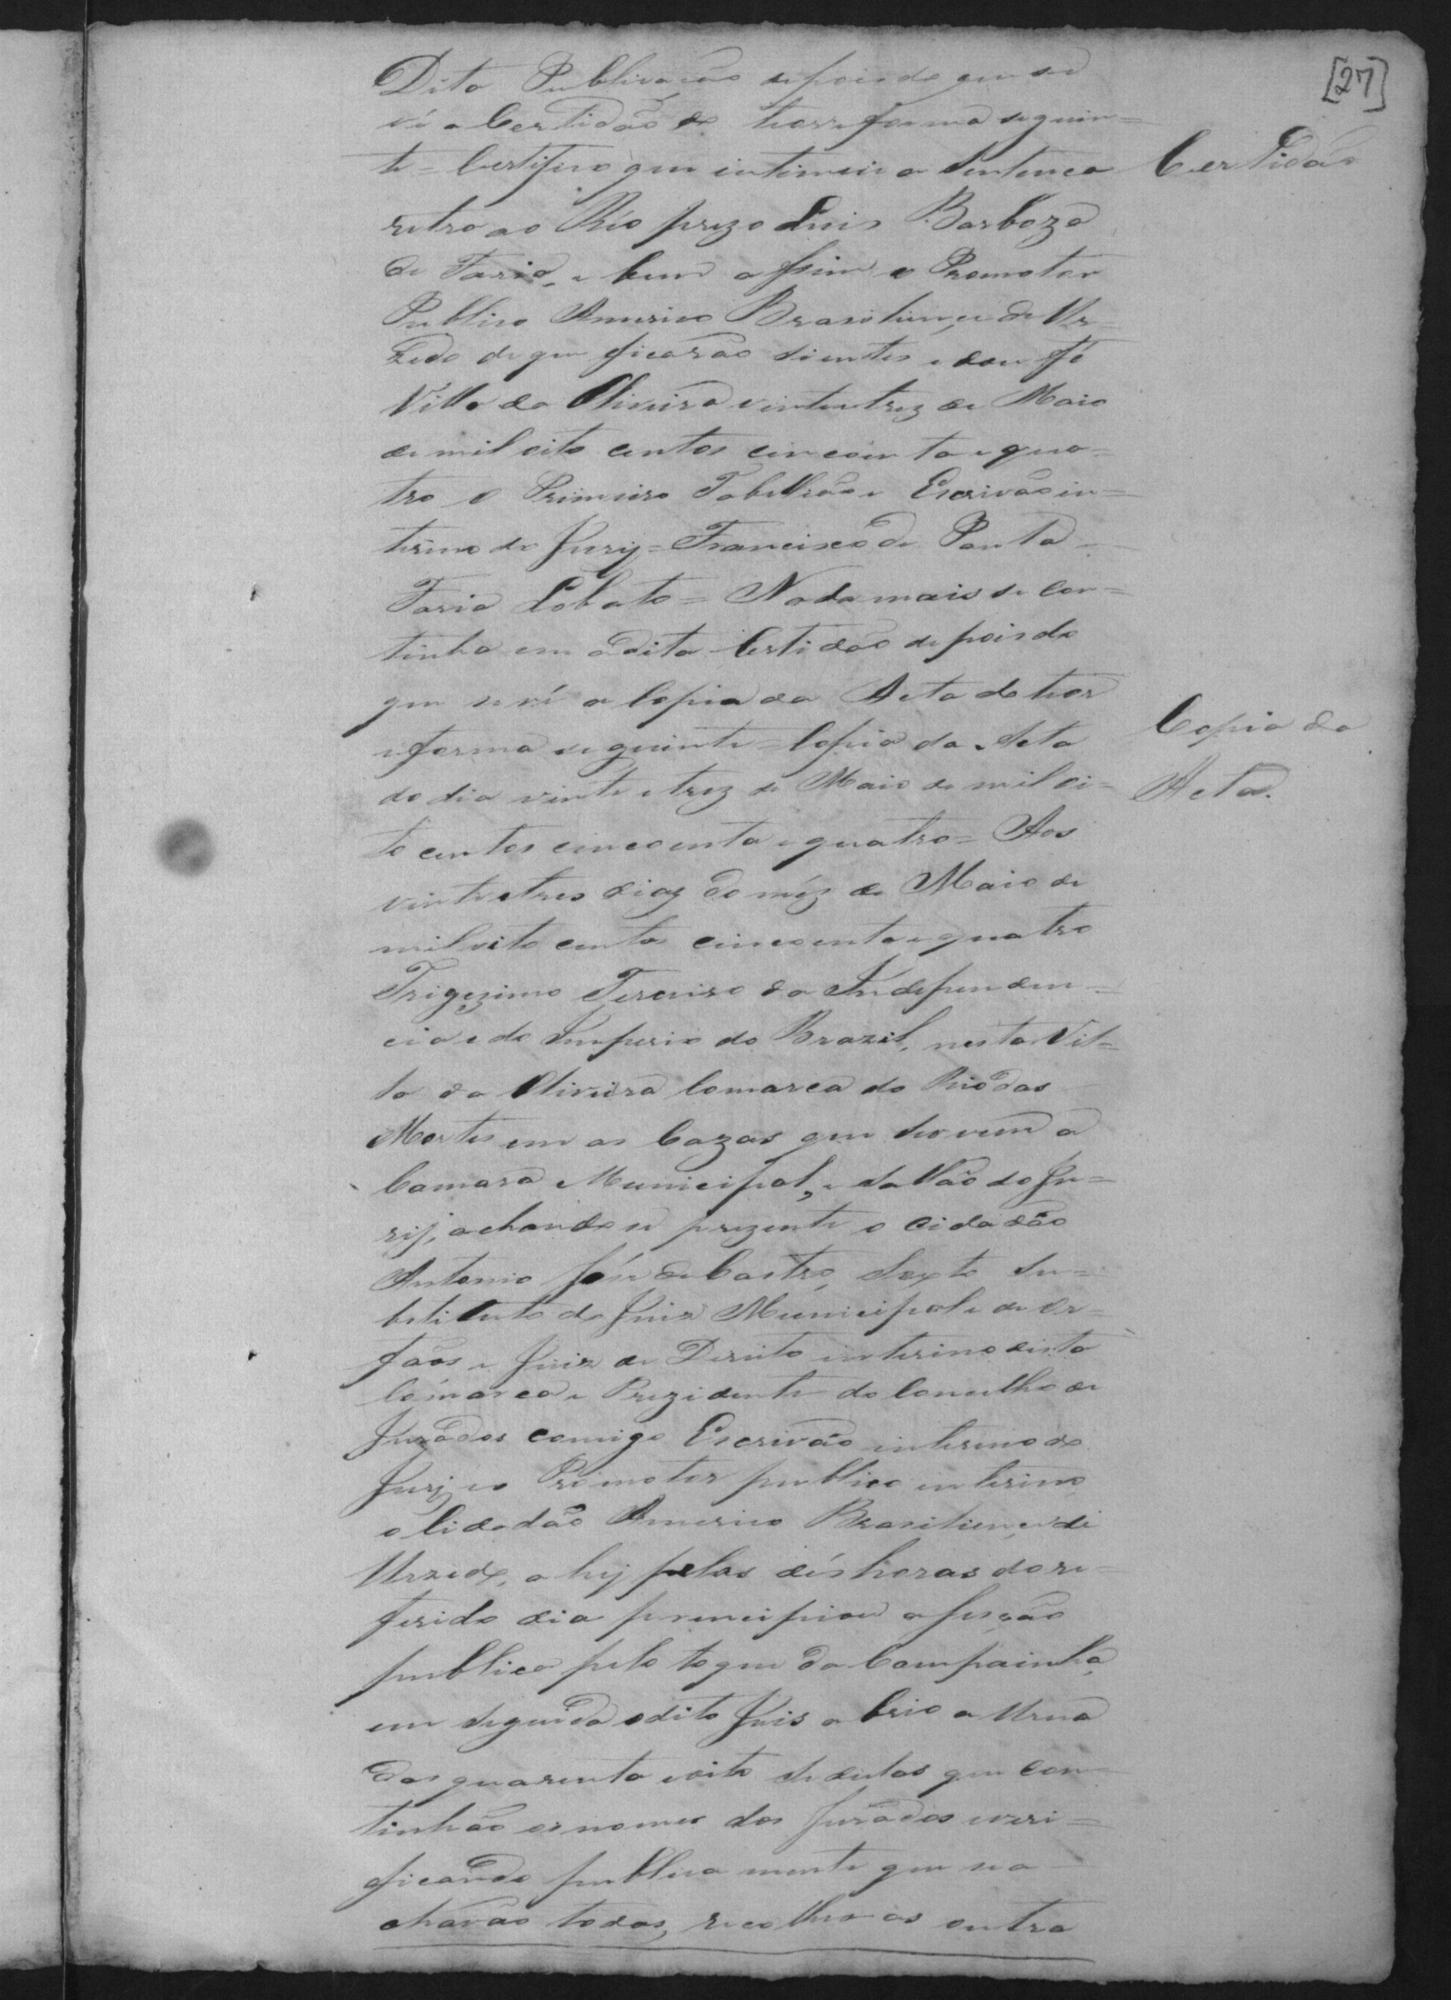 [27]
Dita Publicação depois do que se
vê a Certidão do theor e forma seguin=
te = Certifico que intimei a Sentença
Certidão
retro ao Réo prezo Luis Barboza
de Faria, e bem assim o Promotor
Publico Americo Brasiliense de Ur=
zedo de que ficarão sientes e dou fé
Villa da Oliveira vinte e trez de Maio
de mil oito centos cincoenta e qua=
tro o Primeiro Tabellião e Escrivão in=
terino do Jury = Francisco de Paula
Faria Lobato = Nada mais se con=
tinha em a dita Certidão depois do
que se vê a Copia da Acta do theor
e forma seguinte = Copia da Acta
Copia da
Acta.
do dia vinte e trez de Maio de mil oi=
to centos cincoenta e quatro = Aos
vinte e tres dias do mêz de Maio de
mil oito centos cincoenta e quatro
Trigezimo Terceiro da Independen=
cia e do Imperio do Brazil, nesta Vil=
la da Oliveira Comarca do Rio das
Mortes em as Cazas que servem a
Camara Municipal, e Sallão do Ju=
ry, achando se prezente o Cidadão
Antonio José de Castro, Sexto Su=
bstituto do Juiz Municipal e de Or=
fãos e Juiz de Direito interino desta
Comarca e Prezidente do Concelho de
Jurados comigo Escrivão interino do
Jury e o Promotor publico interino
o Cidadão Americo Brasiliense de
Urzedo, a hy pelas dés horas do re=
ferido dia principiou a sessão
publica pelo toque da Campainha,
em seguida o dito Juis abrio a Urna
das quarenta e oito sedulas que con=
tinhão os nomes dos Jurados e veri=
ficando publica mente que se a
chavão todas, recolheo as outra